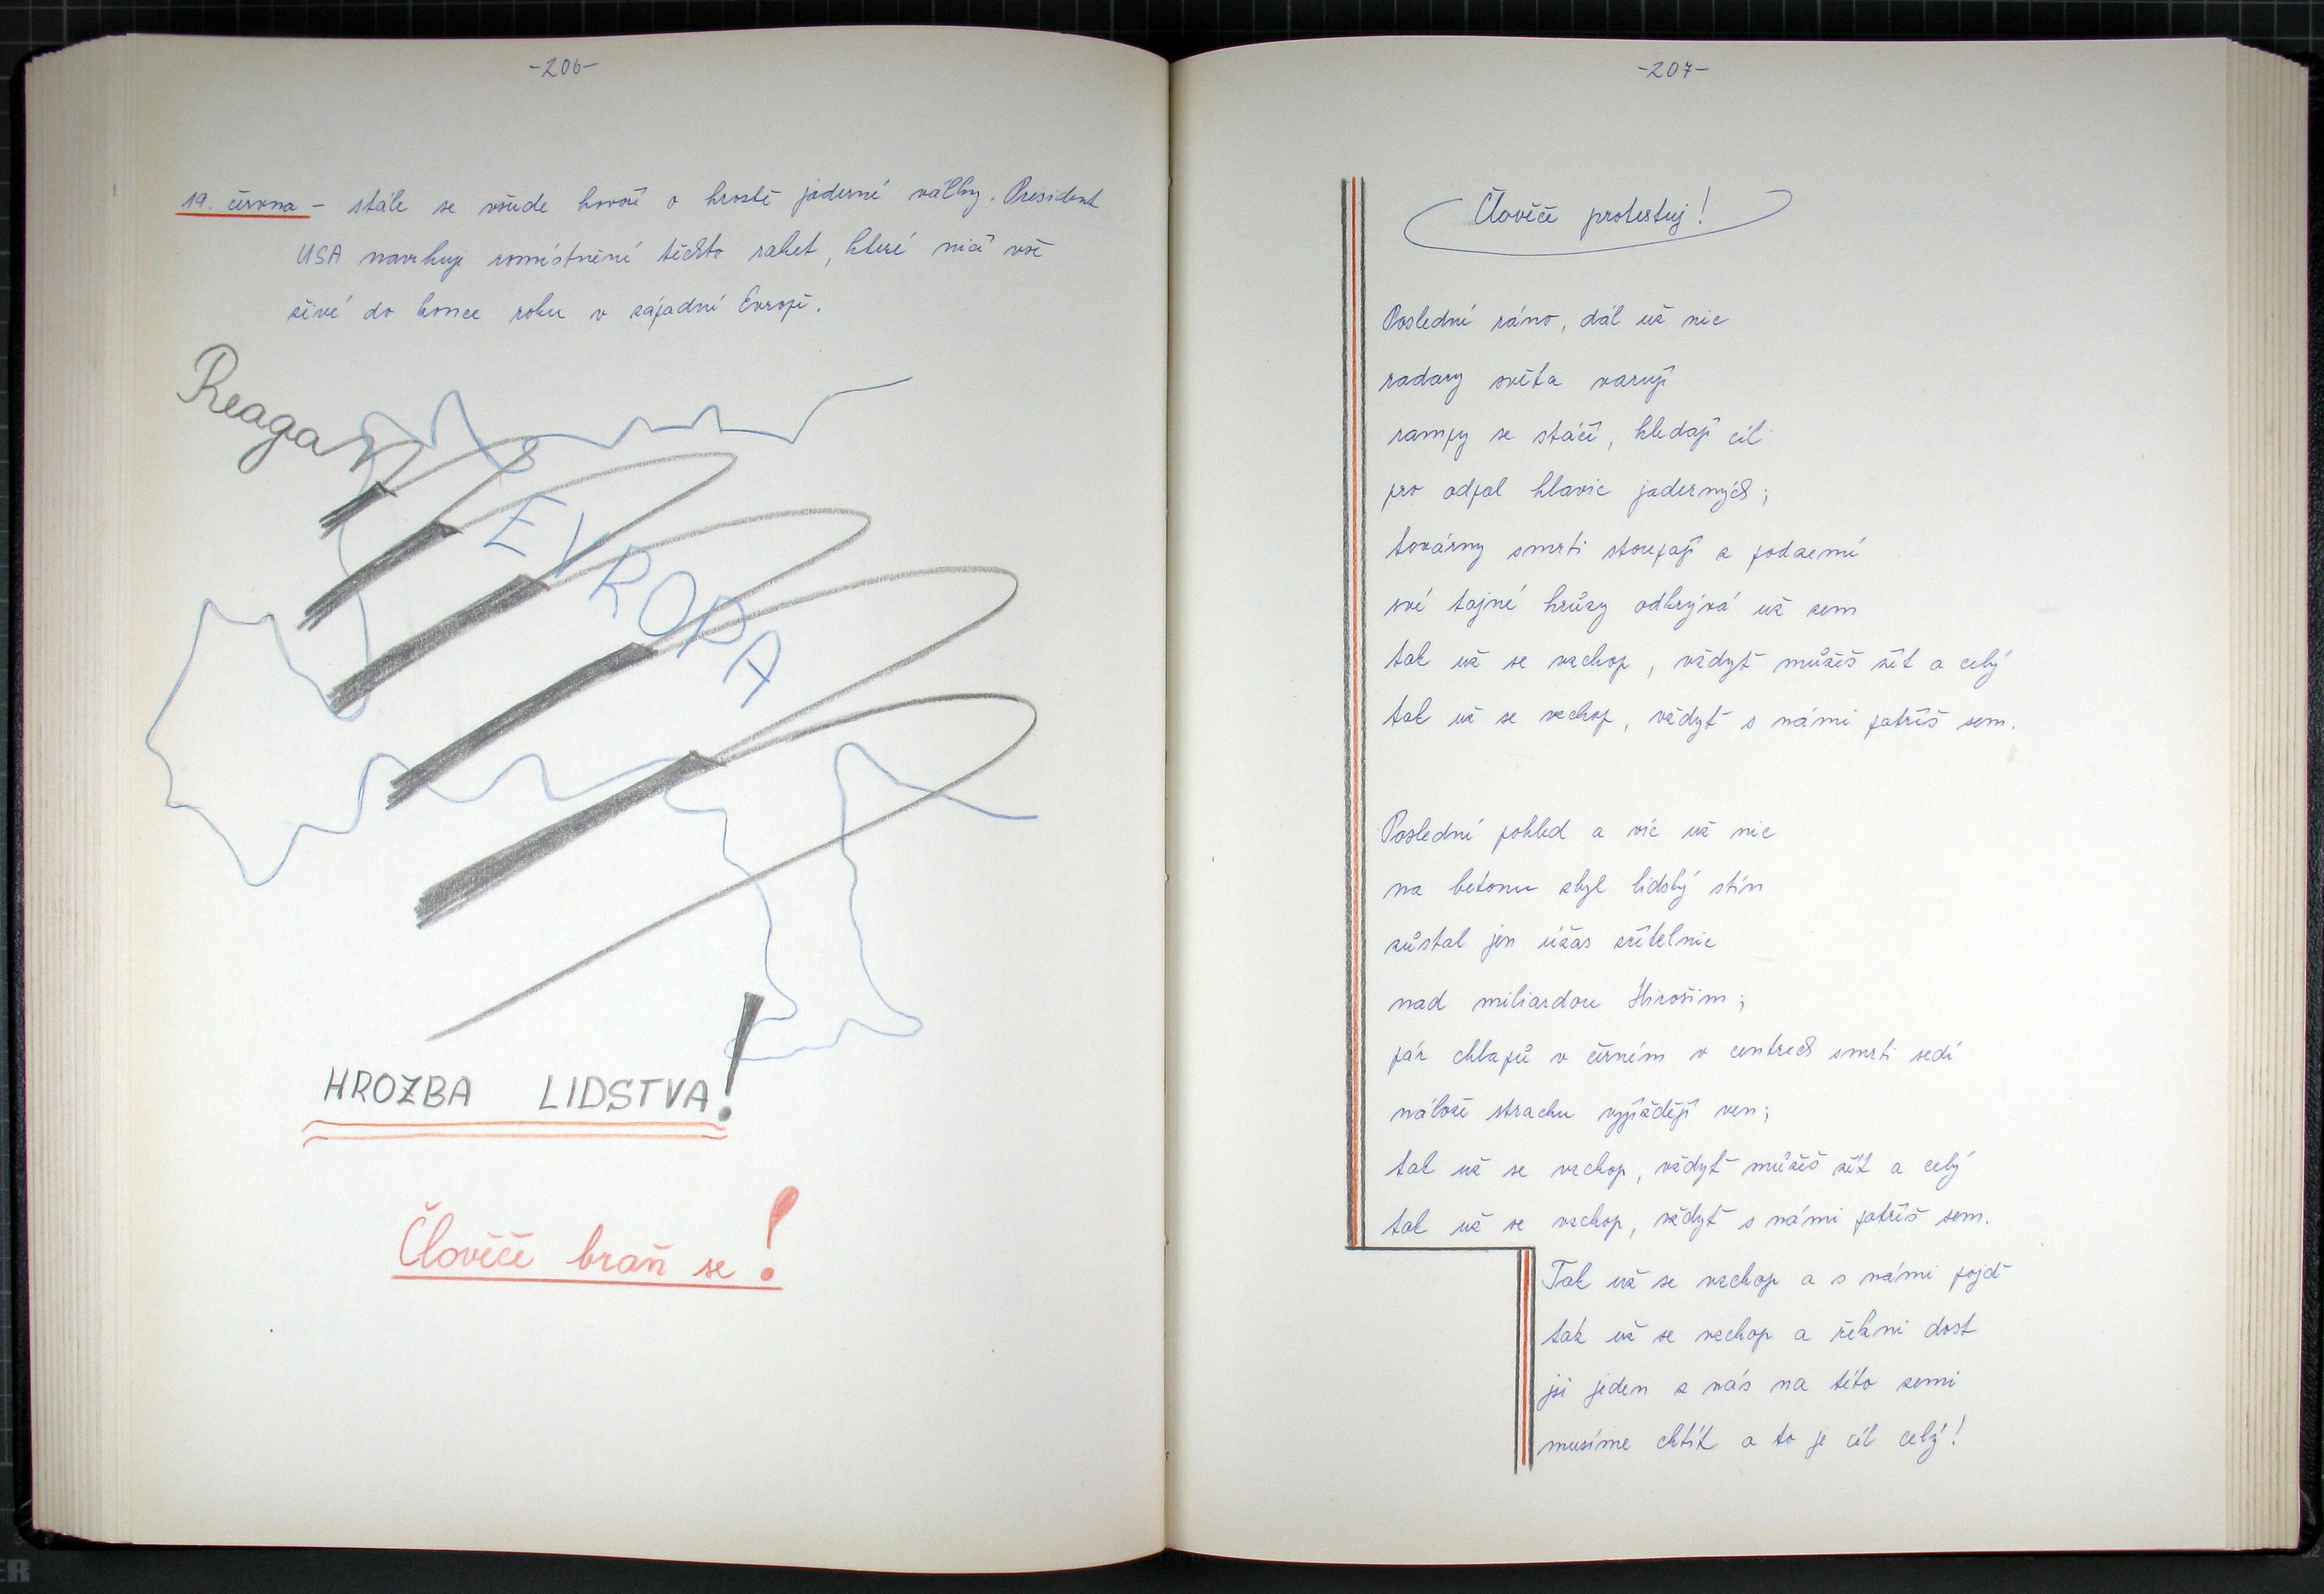 -206-
19. června - stále se všude hovoří o hrozbě jaderné války. President
USA navrhuje rozmístnění těchto raket, které ničí vše
živé do konce roku v západní Evropě.
Reagan
EVROPA
HROZBA LIDSTVA!
Člověče braň se!
-207-
Člověče protestuj!
Poslední ráno, dál už nic
radary světa varují
rampy se stáčí, hledají cíl
pro odpal hlavic jaderných;
továrny smrti stoupají z podzemí
své tajné hrůzy odkrývá už zem
tak už se vzchop, vždyť můžeš žít a celý
tak už se vzchop, vždyť s námi patříš sem.
Poslední pohled a víc už nic
na betonu zbyl lidský stín
zůstal jen úžas zřítelnic
nad miliardou Hirošim;
pár chlapů v černém v centrech smrti sedí
nálože strachu vyjíždějí ven;
tak už se vzchop, vždyť můžeš žít a celý
tak už se vzchop, vždyť s námi patříš sem.
Tak už se vzchop a s námi pojď
tak už se vzchop a řekni dost
jsi jeden z nás na této zemi
musíme chtít a to je cíl celý!